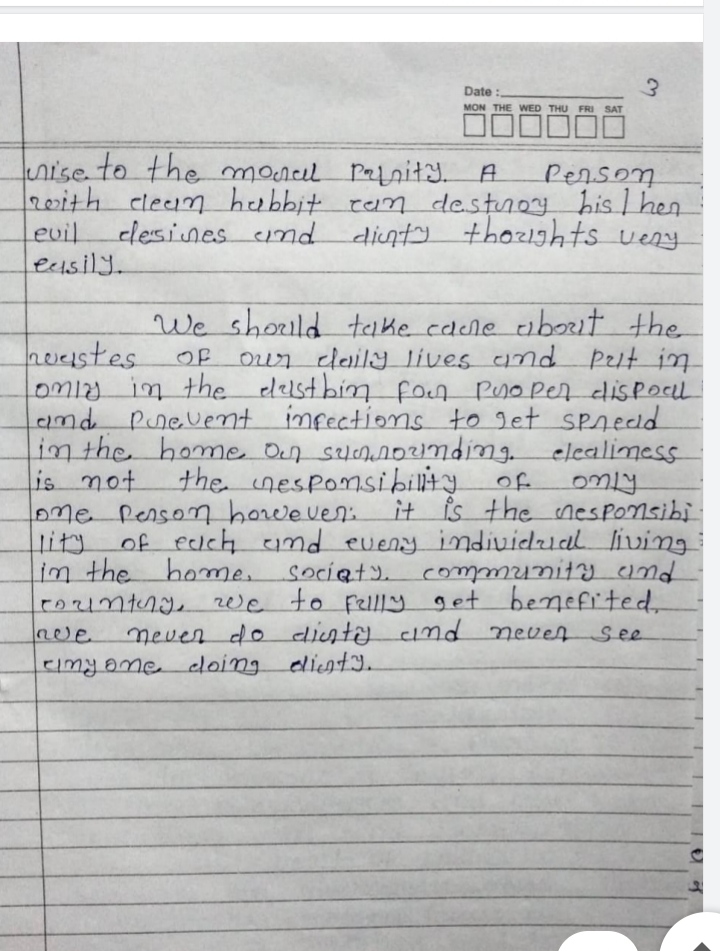 3
Date :
MON THE WED THU FRI SAT
rise to the moral Purity. A Person
with clean habbit can destroy his/her
evil desires and dirty thoughts very
easily.
We should take care about the
wastes of our daily lives and put in
only in the dustbin for proper dispoal
and prevent infections to get spread
in the home or surrounding. clealiness
is not the responsibility of only
one person however: it is the responsibi
lity of each and every individual living
in the home, society, community and
country, we to fully get benefited.
we never do dirty and never see
anyone doing dirty.